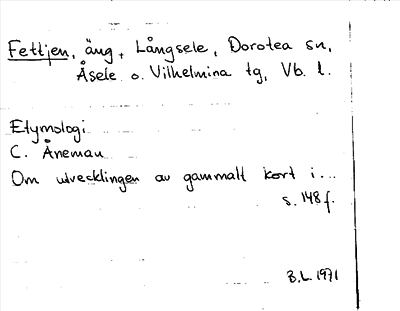 Fettjen, äng, Långsele, Dorotea sn,
Åsele o. Vilhelmina tg, Vb. l.
Etymologi
C. Åneman
Om utvecklingen av gammalt kort i...
s. 148 f.
B.L. 1971